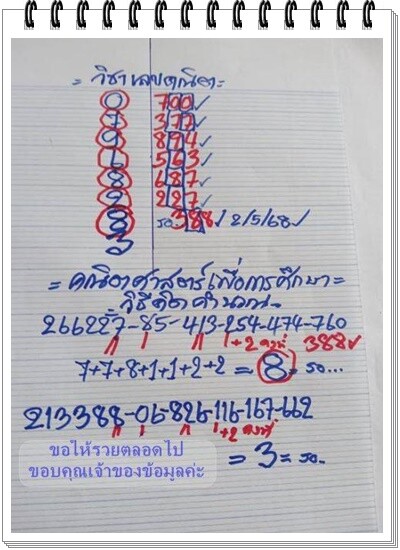 = วิชาเลขคณิต =
0 700 ✓
7 377 ✓
9 894 ✓
6 563 ✓
8 687 ✓
2 227 ✓
8 รอ 388 ✓ 2/5/68 ✓
3
= คณิตศาสตร์เพื่อการศึกษา =
วิธีคิดคำนวณ
266227-85-413-254-474-760
+2 คงที่ 388 ✓
7+7+8+1+1+2+2 = 8 = รอ...
213388-06-826-116-167-662
+2 คงที่
= 3 = รอ..
ขอให้รวยตลอดไป
ขอบคุณเจ้าของข้อมูลค่ะ